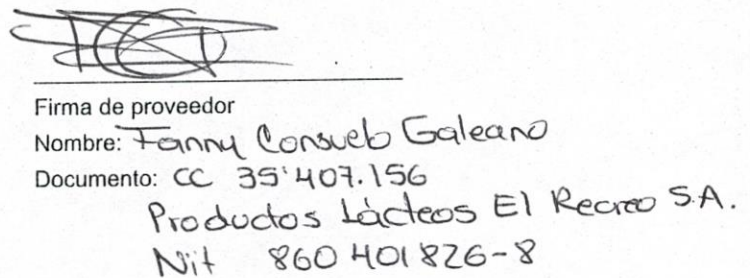 Firma de proveedor
Nombre: Fanny Consuelo Galeano
Documento: CC 35'407.156
Productos Lácteos El Recreo S.A.
Nit 860 401 826-8